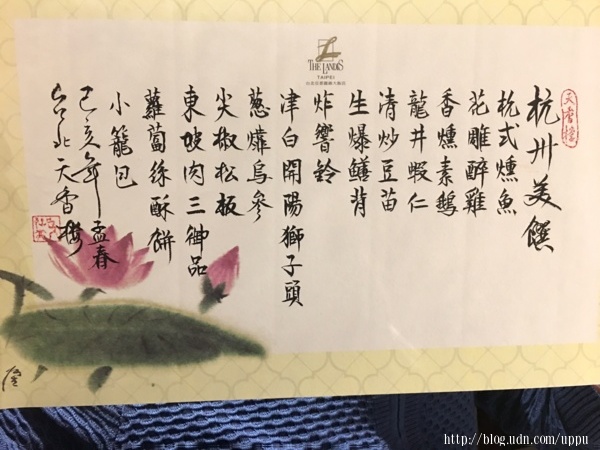 THE LANDIS
TAIPEI
台北亞都麗緻大飯店
天香樓
杭州美饌
杭式燻魚
花雕醉雞
香燻素鵝
龍井蝦仁
清炒豆苗
生爆鱔背
炸響鈴
津白開陽獅子頭
蔥㸆烏參
尖椒松板
東坡肉三御品
蘿蔔絲酥餅
小籠包
己亥年 孟春
台北天香樓
http://blog.udn.com/uppu